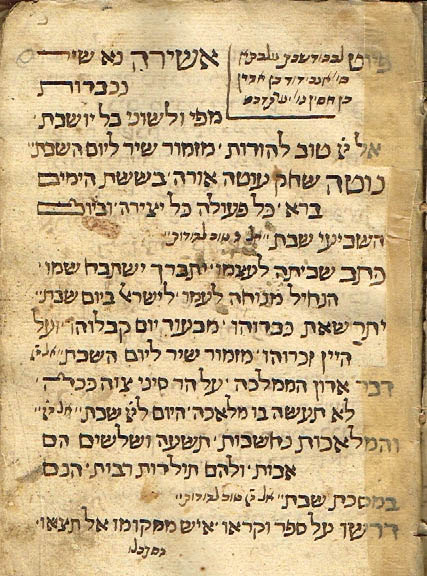 פיוט לכבוד שבת
בן חסין
אשירה נא שיר
נכברות
מפי ולשוני כל יושבת׳
אל יי׳ טוב להודות׳ מזמור שיר ליום השבת׳
נוטה שחק עוטה אורה׳ בששת הימים
ברא׳ כל פעולה כל יצירה׳ וביום
השביעי שבת׳ טוב להודות׳
כתב שביתה לעצמו׳ יתברך ישתבח שמו׳
הנחיל מנוחה לעמו׳ לישראל ביום שבת׳
יתר שאת כבדוהו׳ מבעוד יום קבלוהו׳ ועל
היין זכרוהו׳ מזמור שיר ליום השבת׳
דבר ארון הממלכה׳ על הר סיני צוה ככה׳
לא תעשה בו מלאכה׳ היום ליי׳ שבת׳
והמלאכות נחשבות׳ תשעה ושלשים הם
אבות׳ ולהם תולדות רבות׳ הנם
במסכת שבת׳ טוב להודות׳
דרשו על ספר וקראו׳ איש ממקומו אל תצאו׳